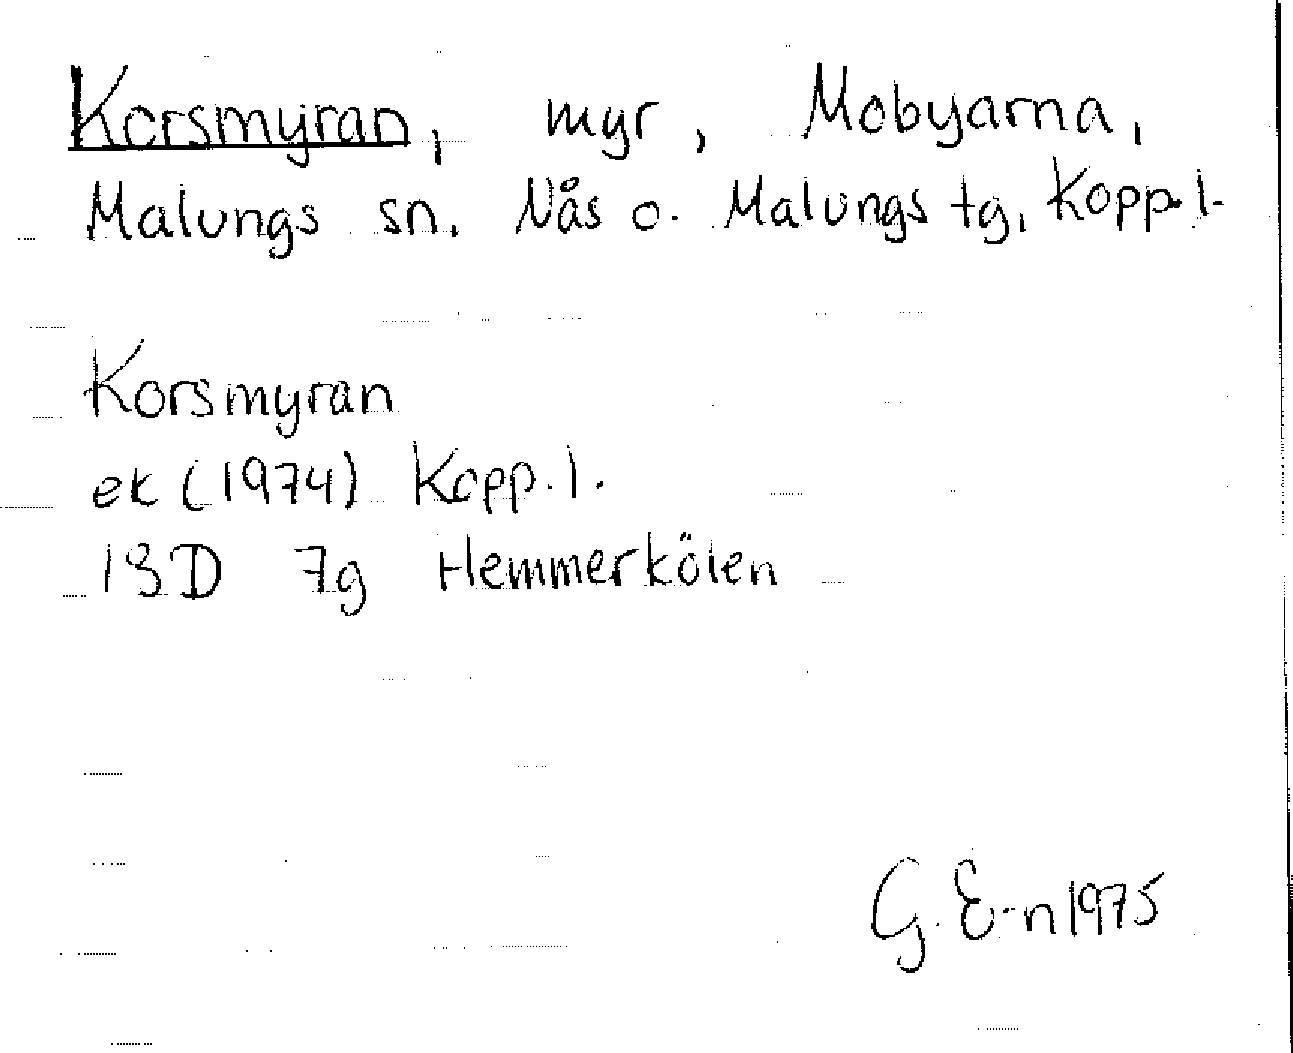 Korsmyran, myr, Mobyarna,
Malungs sn. Nås o. Malungs tg, Kopp. l.
Korsmyran
ek (1974) Kopp. l.
13D 7g Hemmerkölen
G. E-n 1975